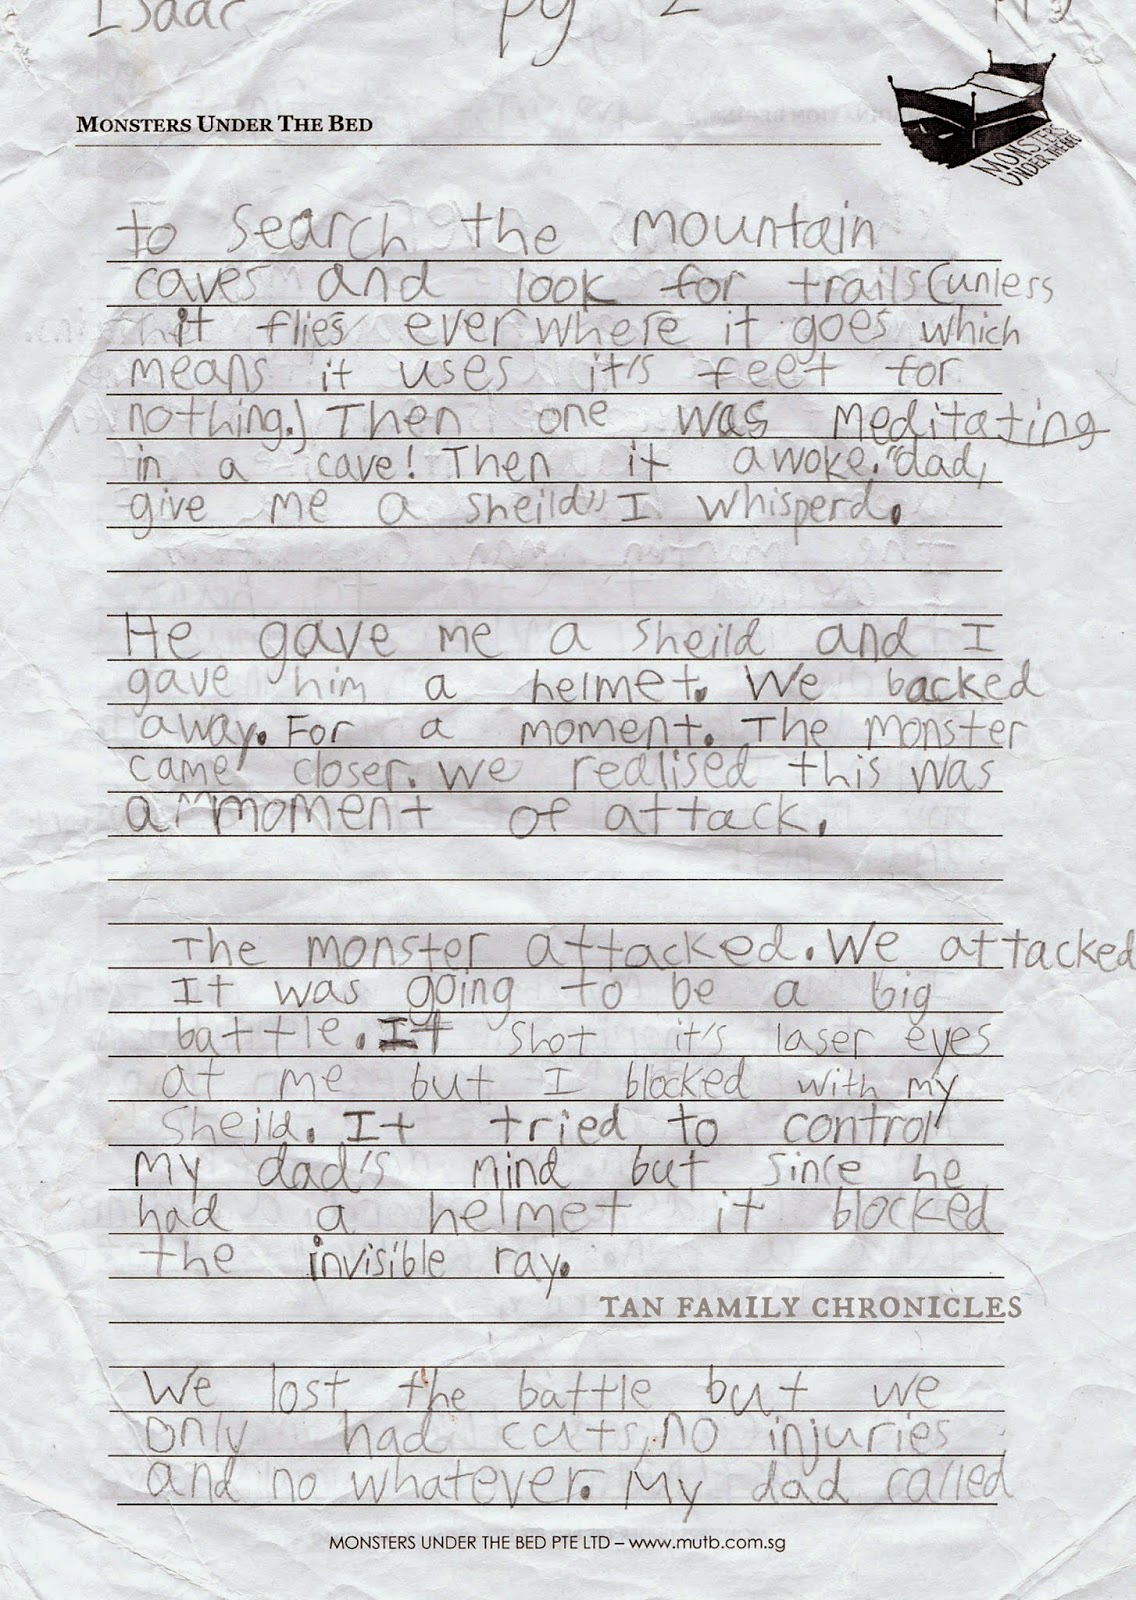 Isaac pg 2
MONSTERS UNDER THE BED
MONSTERS
UNDER THE BED
to search the mountain
caves and look for trails(unless
it flies everwhere it goes which
means it uses it's feet for
nothing.) Then one was meditating
in a cave! Then it awoke. "dad,
give me a sheild" I whisperd.
He gave me a sheild and I
gave him a helmet. We backed
away. For a moment. The monster
came closer. We realised this was
a moment of attack.
The monster attacked. We attacked
It was going to be a big
battle. It shot it's laser eyes
at me but I blocked with my
sheild. It tried to control
my dad's mind but since he
had a helmet it blocked
the invisible ray.
TAN FAMILY CHRONICLES
We lost the battle but we
only had cuts, no injuries
and no whatever. My dad called
MONSTERS UNDER THE BED PTE LTD – www.mutb.com.sg